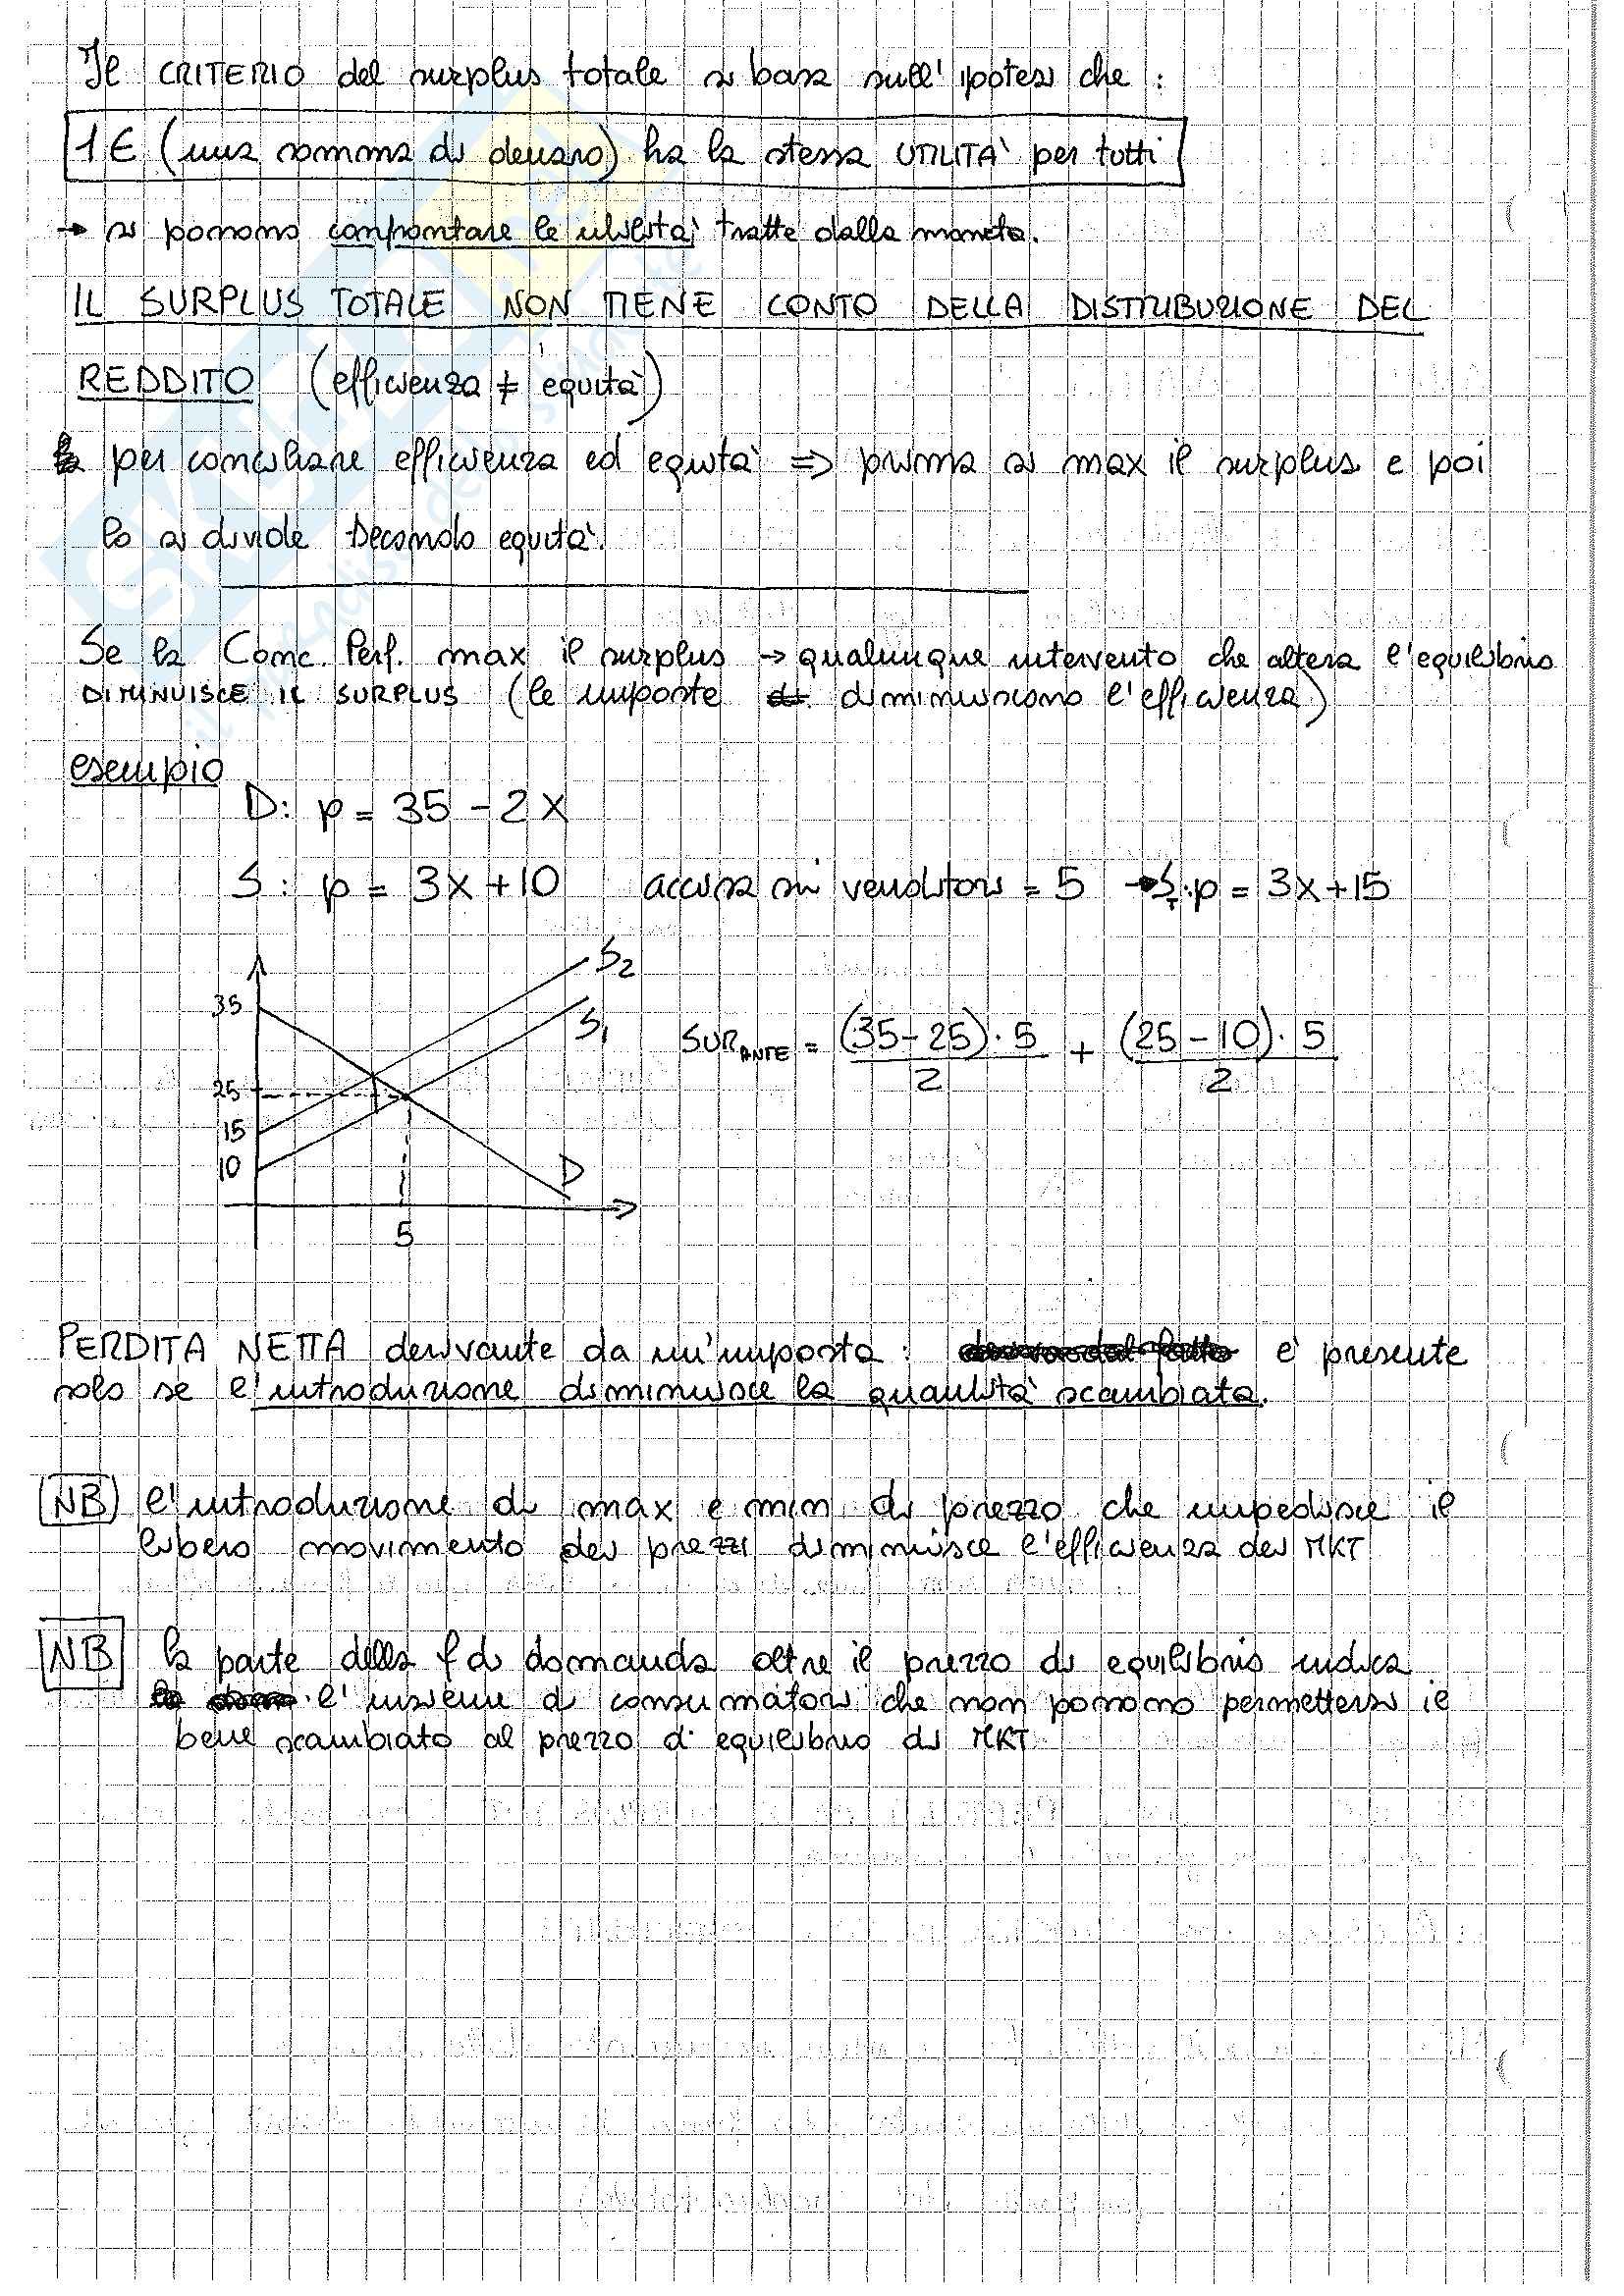 Il CRITERIO del surplus totale si basa sull'ipotesi che :
1€ (una somma di denaro) ha la stessa UTILITA' per tutti
→ si possono confrontare le utilità tratte dalla moneta.
IL SURPLUS TOTALE NON TIENE CONTO DELLA DISTRIBUZIONE DEL
REDDITO (efficienza ≠ equità)
per conciliare efficienza ed equità => prima si max il surplus e poi
lo si divide secondo equità.
Se la Conc. Perf. max il surplus → qualunque intervento che altera l'equilibrio
DIMINUISCE IL SURPLUS (le imposte diminuiscono l'efficienza)
esempio
D: p = 35 - 2x
S: p = 3x + 10 accisa sui venditori = 5 → S_T: p = 3x + 15
S2
35
S1
SUR ANTE = (35-25)·5 / 2 + (25-10)·5 / 2
25
15
10
D
5
PERDITA NETTA derivante da un'imposta : è presente
solo se l'introduzione diminuisce la quantità scambiata.
NB l'introduzione di max e min di prezzo che impedisce il
libero movimento dei prezzi diminuisce l'efficienza dei MKT
NB la parte della f di domanda oltre il prezzo di equilibrio indica
l'insieme di consumatori che non possono permettersi il
bene scambiato al prezzo di equilibrio di MKT